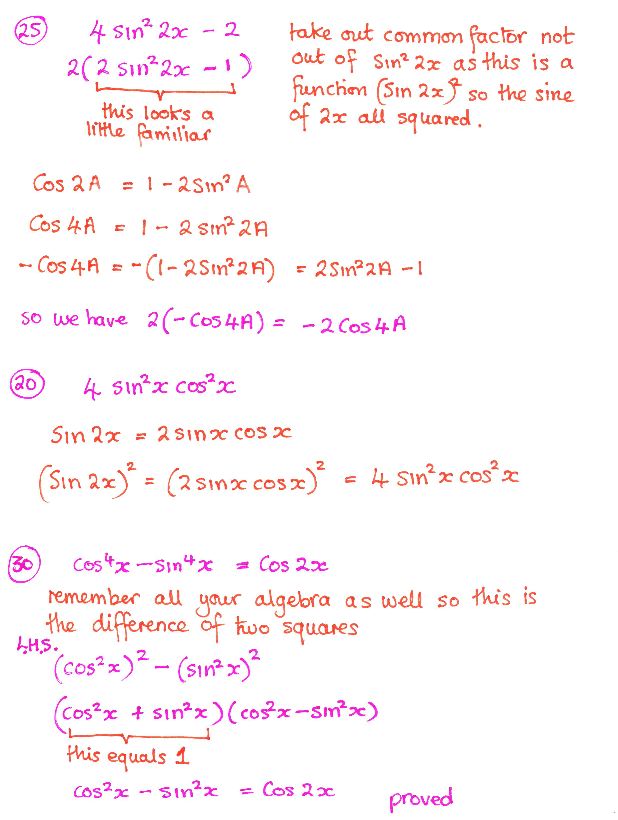 25 4 sin² 2x − 2
2(2 sin² 2x − 1)
this looks a
little familiar
take out common factor not
out of sin² 2x as this is a
function (sin 2x)² so the sine
of 2x all squared.
Cos 2A = 1 − 2 Sin² A
Cos 4A = 1 − 2 sin² 2A
− Cos 4A = −(1 − 2 Sin² 2A) = 2 Sin² 2A − 1
so we have 2(− Cos 4A) = − 2 Cos 4A
20 4 sin² x cos² x
Sin 2x = 2 sin x cos x
(Sin 2x)² = (2 sin x cos x)² = 4 sin² x cos² x
30 cos⁴x − sin⁴x = Cos 2x
remember all your algebra as well so this is
the difference of two squares
L.H.S.
(cos² x)² − (sin² x)²
(cos² x + sin² x)(cos² x − sin² x)
this equals 1
cos² x − sin² x = Cos 2x proved